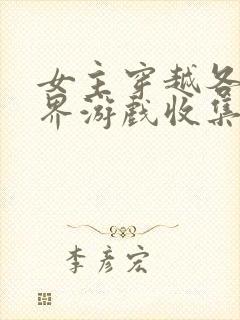 女主穿越各
界游戏收集
李彦宏